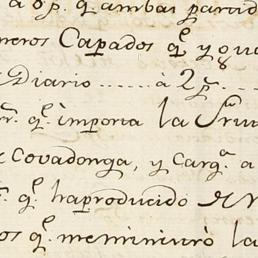 a 8 p.s q.e ambas partid
neros Capados q.e y ou
Diario ...... à 2 p.s
q.e importa la
Covadonga, y Carg.a a
q.e ha producido de
os q.e me ministró la